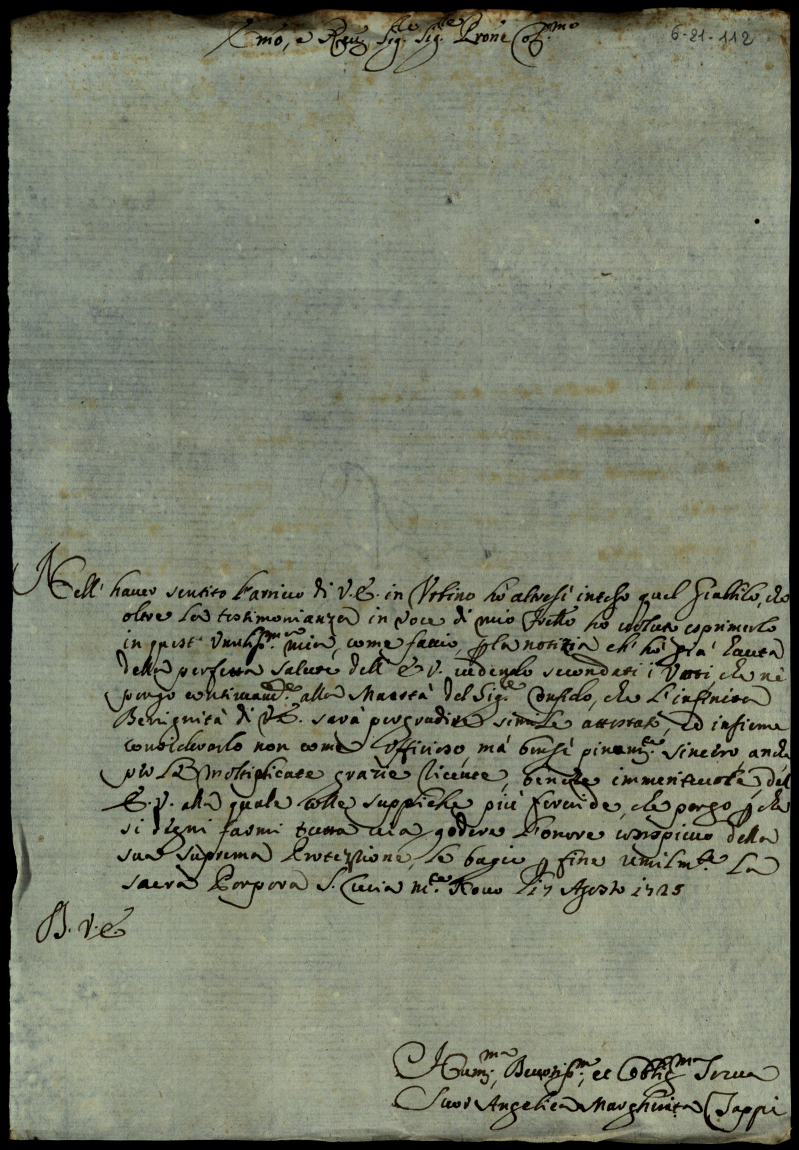 Emo, e Reu Sig.re Sig.re Prone Col.mo
6-21-112
Nell' hauer sentito l'arriuo di V.E. in Vrbino hò altresì inteso quel Giubbilo, che
oltre la testimonianza in voce di mio Frello ho voluto esprimerlo
in quest' mia, come faccio p la notizia ch' hò già hauta
della perfetta salute dell' E V. uedendo secondati i Voti, che nè
porgo alla Maestà del Sig.re Confido, che l'infinita
Benignità di V.E. sarà p gradire simile attestato, ed insieme
considerarlo non come Officioso, mà bensì sincero, anche
p le moltiplicate grazie riceute, benche immeriteuole dell'
E.V. alla quale colle suppliche più feruide, che porgo p che
si degni farmi tutta uia godere l'onore conspicuo della
sua suprema Protezzione, le bagio p fine umilm.te La
sacra Porpora S. Nouo li 7 Agosto 1725
D. V.E.
Hum.ma, Deuotis.ma, et Obblig.ma Serua
Suor Angelica Margherita